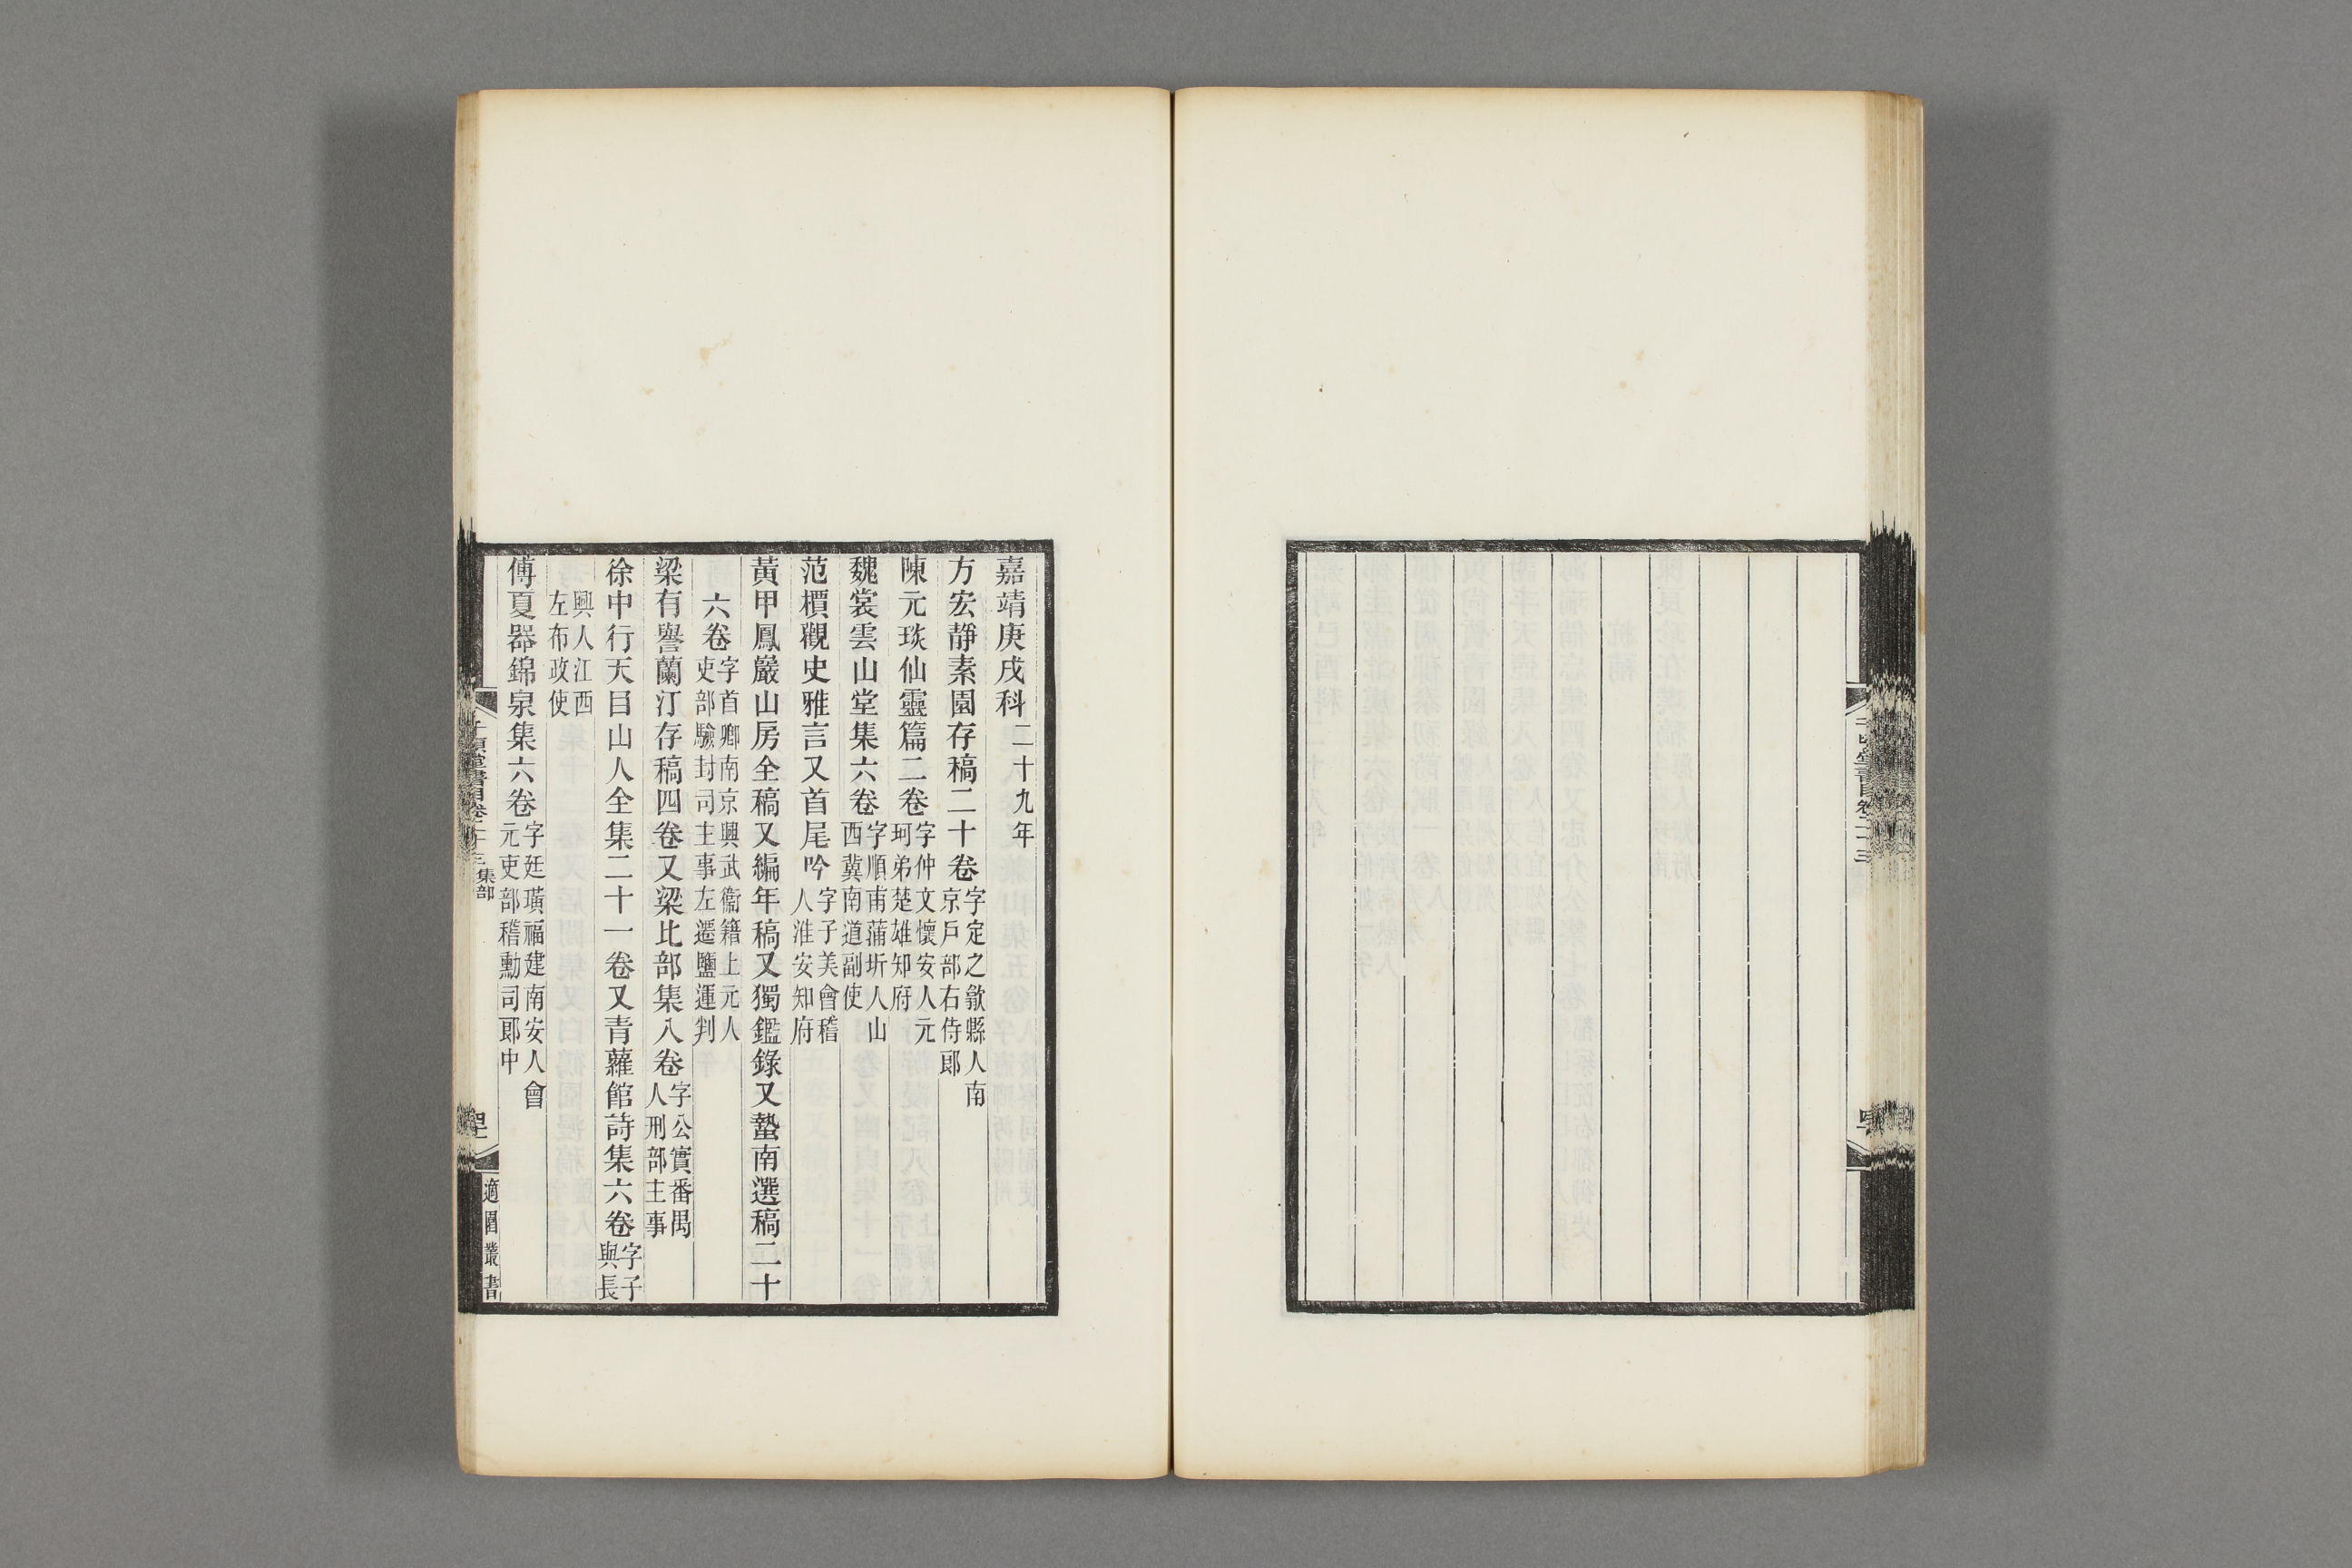 嘉靖庚戌科二十九年
方宏靜素園存稿二十卷字定之歙縣人南京戶部右侍郎
陳元琰仙靈篇二卷字仲文懷安人元珂弟楚雄知府
魏裳雲山堂集六卷字順甫蒲圻人山西冀南道副使
范檟觀史雅言又首尾吟字子美會稽人淮安知府
黃甲鳳巖山房全稿又編年稿又獨鑑錄又蟄南選稿二十
六卷字首卿南京興武衞籍上元人吏部驗封司主事左遷鹽運判
梁有譽蘭汀存稿四卷又梁比部集八卷字公實番禺人刑部主事
徐中行天目山人全集二十一卷又青蘿館詩集六卷字子與長
興人江西左布政使
傅夏器錦泉集六卷字廷璜福建南安人會元吏部稽勳司郎中
千頃堂書目卷二十三集部
適園叢書